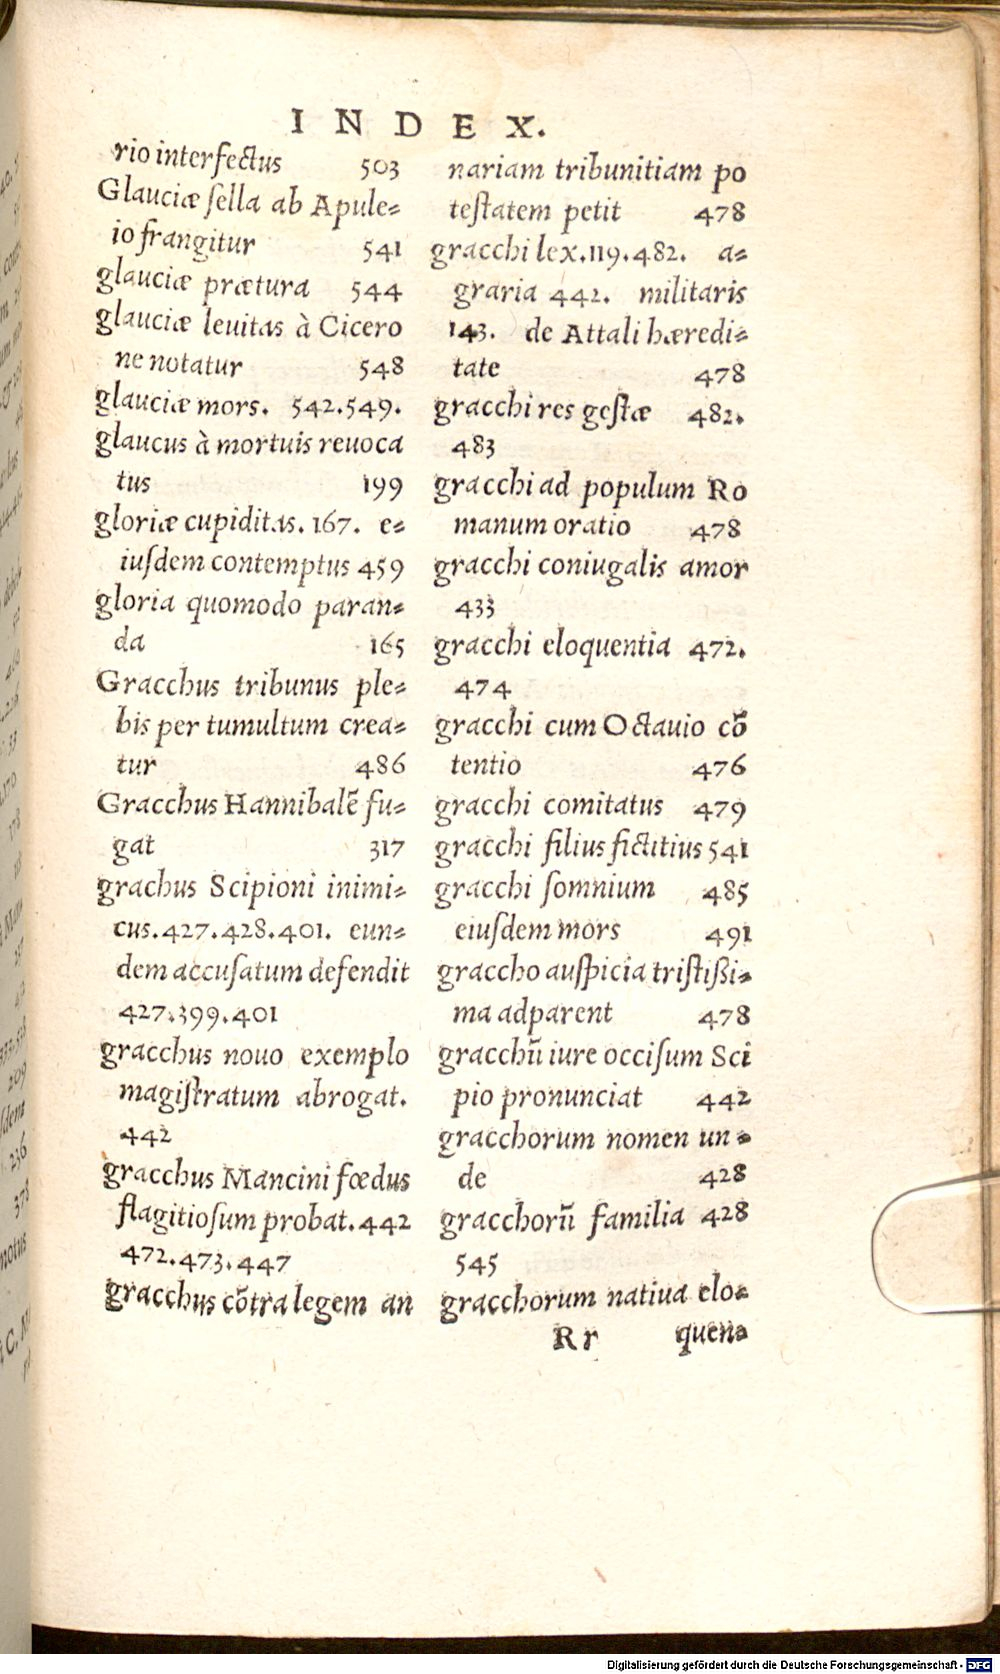 INDEX.
rio interfectus 503
Glauciæ ſella ab Apule=
io frangitur 541
glauciæ prætura 544
glauciæ leuitas à Cicero
ne notatur 548
glauciæ mors. 542.549.
glaucus à mortuis reuoca
tus 199
gloriæ cupiditas. 167. e=
iuſdem contemptus 459
gloria quomodo paran=
da 165
Gracchus tribunus ple=
bis per tumultum crea=
tur 486
Gracchus Hannibalē fu=
gat 317
grachus Scipioni inimi=
cus. 427.428.401. eun=
dem accuſatum defendit
427.399.401
gracchus nouo exemplo
magiſtratum abrogat.
442
gracchus Mancini fœdus
flagitioſum probat. 442
472.473.447
gracchus cōtra legem an
nariam tribunitiam po
teſtatem petit 478
gracchi lex. 119.482. a=
graria 442. militaris
143. de Attali hæredi=
tate 478
gracchi res geſtæ 482.
483
gracchi ad populum Ro
manum oratio 478
gracchi coniugalis amor
433
gracchi eloquentia 472.
474
gracchi cum Octauio cō
tentio 476
gracchi comitatus 479
gracchi filius fictitius 541
gracchi ſomnium 485
eiuſdem mors 491
graccho auſpicia triſtißi=
ma adparent 478
gracchū iure occiſum Sci
pio pronunciat 442
gracchorum nomen un=
de 428
gracchorū familia 428
545
gracchorum natiua elo=
Rr quen=
Digitalisierung gefördert durch die Deutsche Forschungsgemeinschaft - DFG